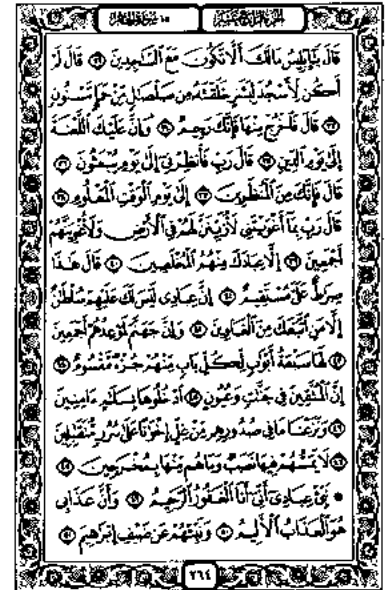 الجزء الرابع عشر ١٥ سورة الحجر
قَالَ يَٰٓإِبْلِيسُ مَا لَكَ أَلَّا تَكُونَ مَعَ ٱلسَّٰجِدِينَ ٣٢ قَالَ لَمْ
أَكُن لِّأَسْجُدَ لِبَشَرٍ خَلَقْتَهُۥ مِن صَلْصَٰلٍ مِّنْ حَمَإٍ مَّسْنُونٍ
٣٣ قَالَ فَٱخْرُجْ مِنْهَا فَإِنَّكَ رَجِيمٌ ٣٤ وَإِنَّ عَلَيْكَ ٱللَّعْنَةَ
إِلَىٰ يَوْمِ ٱلدِّينِ ٣٥ قَالَ رَبِّ فَأَنظِرْنِىٓ إِلَىٰ يَوْمِ يُبْعَثُونَ ٣٦
قَالَ فَإِنَّكَ مِنَ ٱلْمُنظَرِينَ ٣٧ إِلَىٰ يَوْمِ ٱلْوَقْتِ ٱلْمَعْلُومِ ٣٨
قَالَ رَبِّ بِمَآ أَغْوَيْتَنِى لَأُزَيِّنَنَّ لَهُمْ فِى ٱلْأَرْضِ وَلَأُغْوِيَنَّهُمْ
أَجْمَعِينَ ٣٩ إِلَّا عِبَادَكَ مِنْهُمُ ٱلْمُخْلَصِينَ ٤٠ قَالَ هَٰذَا
صِرَٰطٌ عَلَىَّ مُسْتَقِيمٌ ٤١ إِنَّ عِبَادِى لَيْسَ لَكَ عَلَيْهِمْ سُلْطَٰنٌ
إِلَّا مَنِ ٱتَّبَعَكَ مِنَ ٱلْغَاوِينَ ٤٢ وَإِنَّ جَهَنَّمَ لَمَوْعِدُهُمْ أَجْمَعِينَ
٤٣ لَهَا سَبْعَةُ أَبْوَٰبٍ لِّكُلِّ بَابٍ مِّنْهُمْ جُزْءٌ مَّقْسُومٌ ٤٤
إِنَّ ٱلْمُتَّقِينَ فِى جَنَّٰتٍ وَعُيُونٍ ٤٥ ٱدْخُلُوهَا بِسَلَٰمٍ ءَامِنِينَ
٤٦ وَنَزَعْنَا مَا فِى صُدُورِهِم مِّنْ غِلٍّ إِخْوَٰنًا عَلَىٰ سُرُرٍ مُّتَقَٰبِلِينَ
٤٧ لَا يَمَسُّهُمْ فِيهَا نَصَبٌ وَمَا هُم مِّنْهَا بِمُخْرَجِينَ ٤٨
۞ نَبِّئْ عِبَادِىٓ أَنِّىٓ أَنَا ٱلْغَفُورُ ٱلرَّحِيمُ ٤٩ وَأَنَّ عَذَابِى
هُوَ ٱلْعَذَابُ ٱلْأَلِيمُ ٥٠ وَنَبِّئْهُمْ عَن ضَيْفِ إِبْرَٰهِيمَ ٥١
٢٦٤